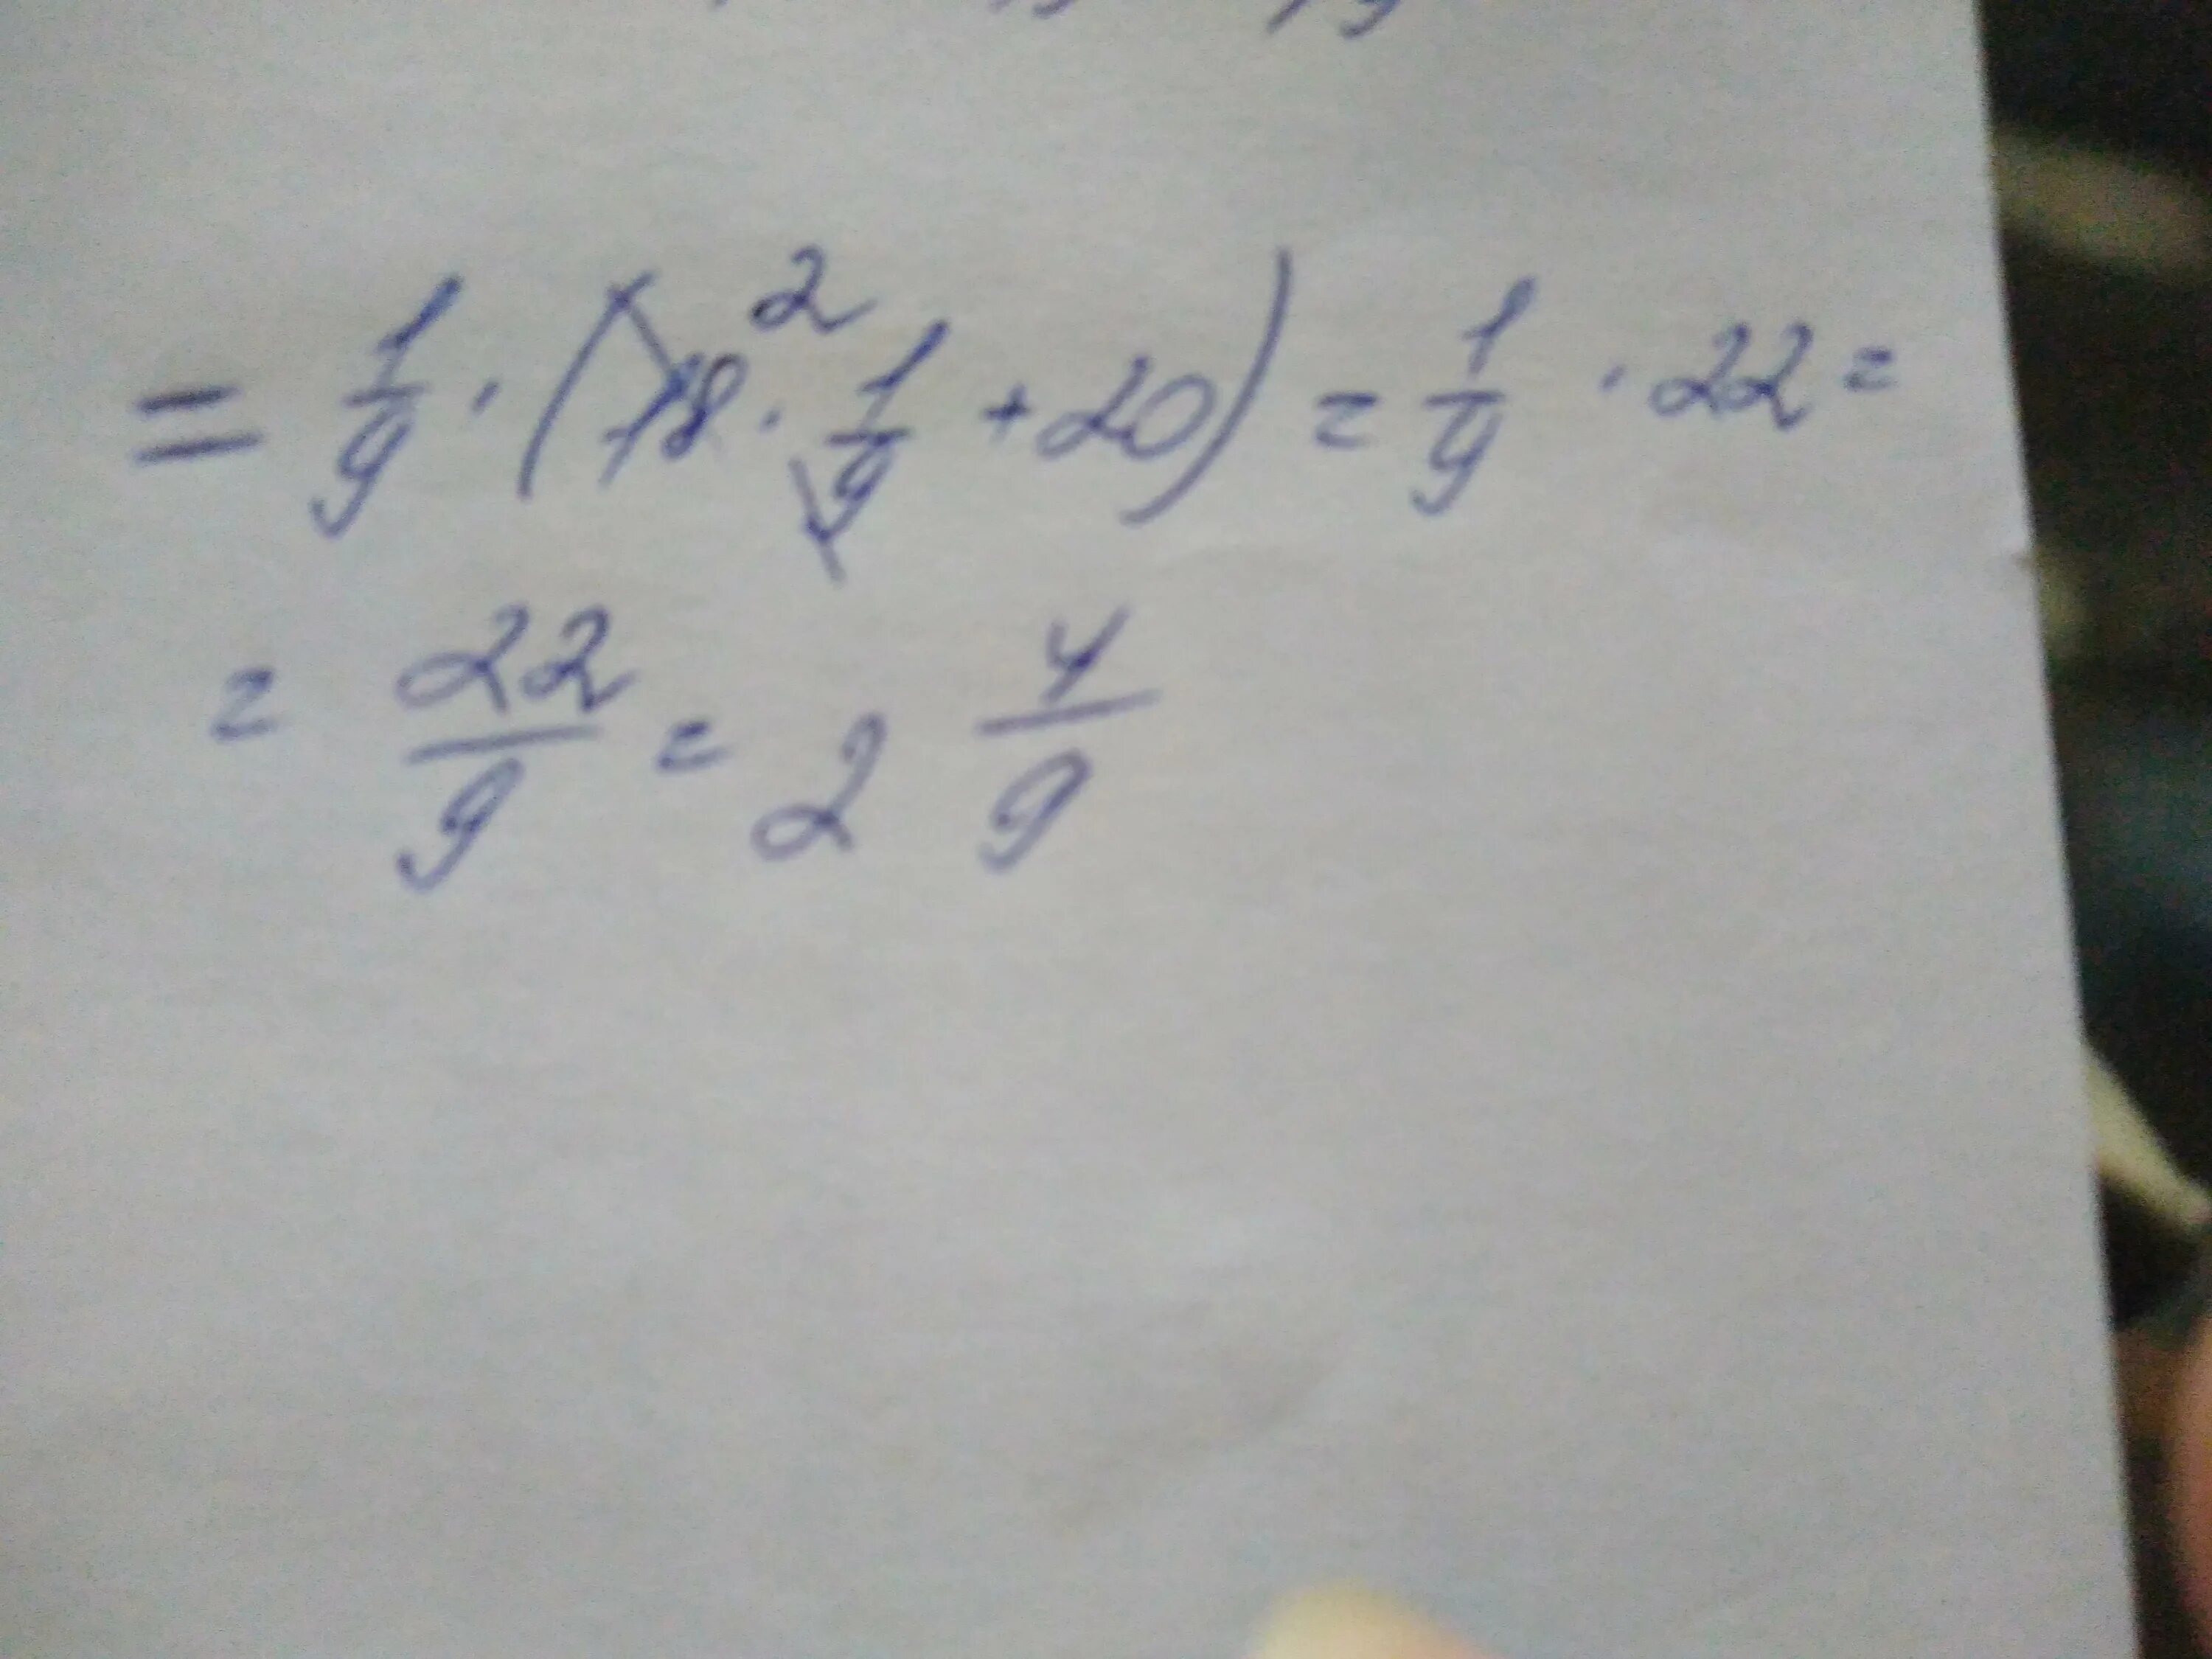 = 1/9 · (18² · 1/9 + 20) = 1/9 · 22 =
= 22/9 = 2 4/9